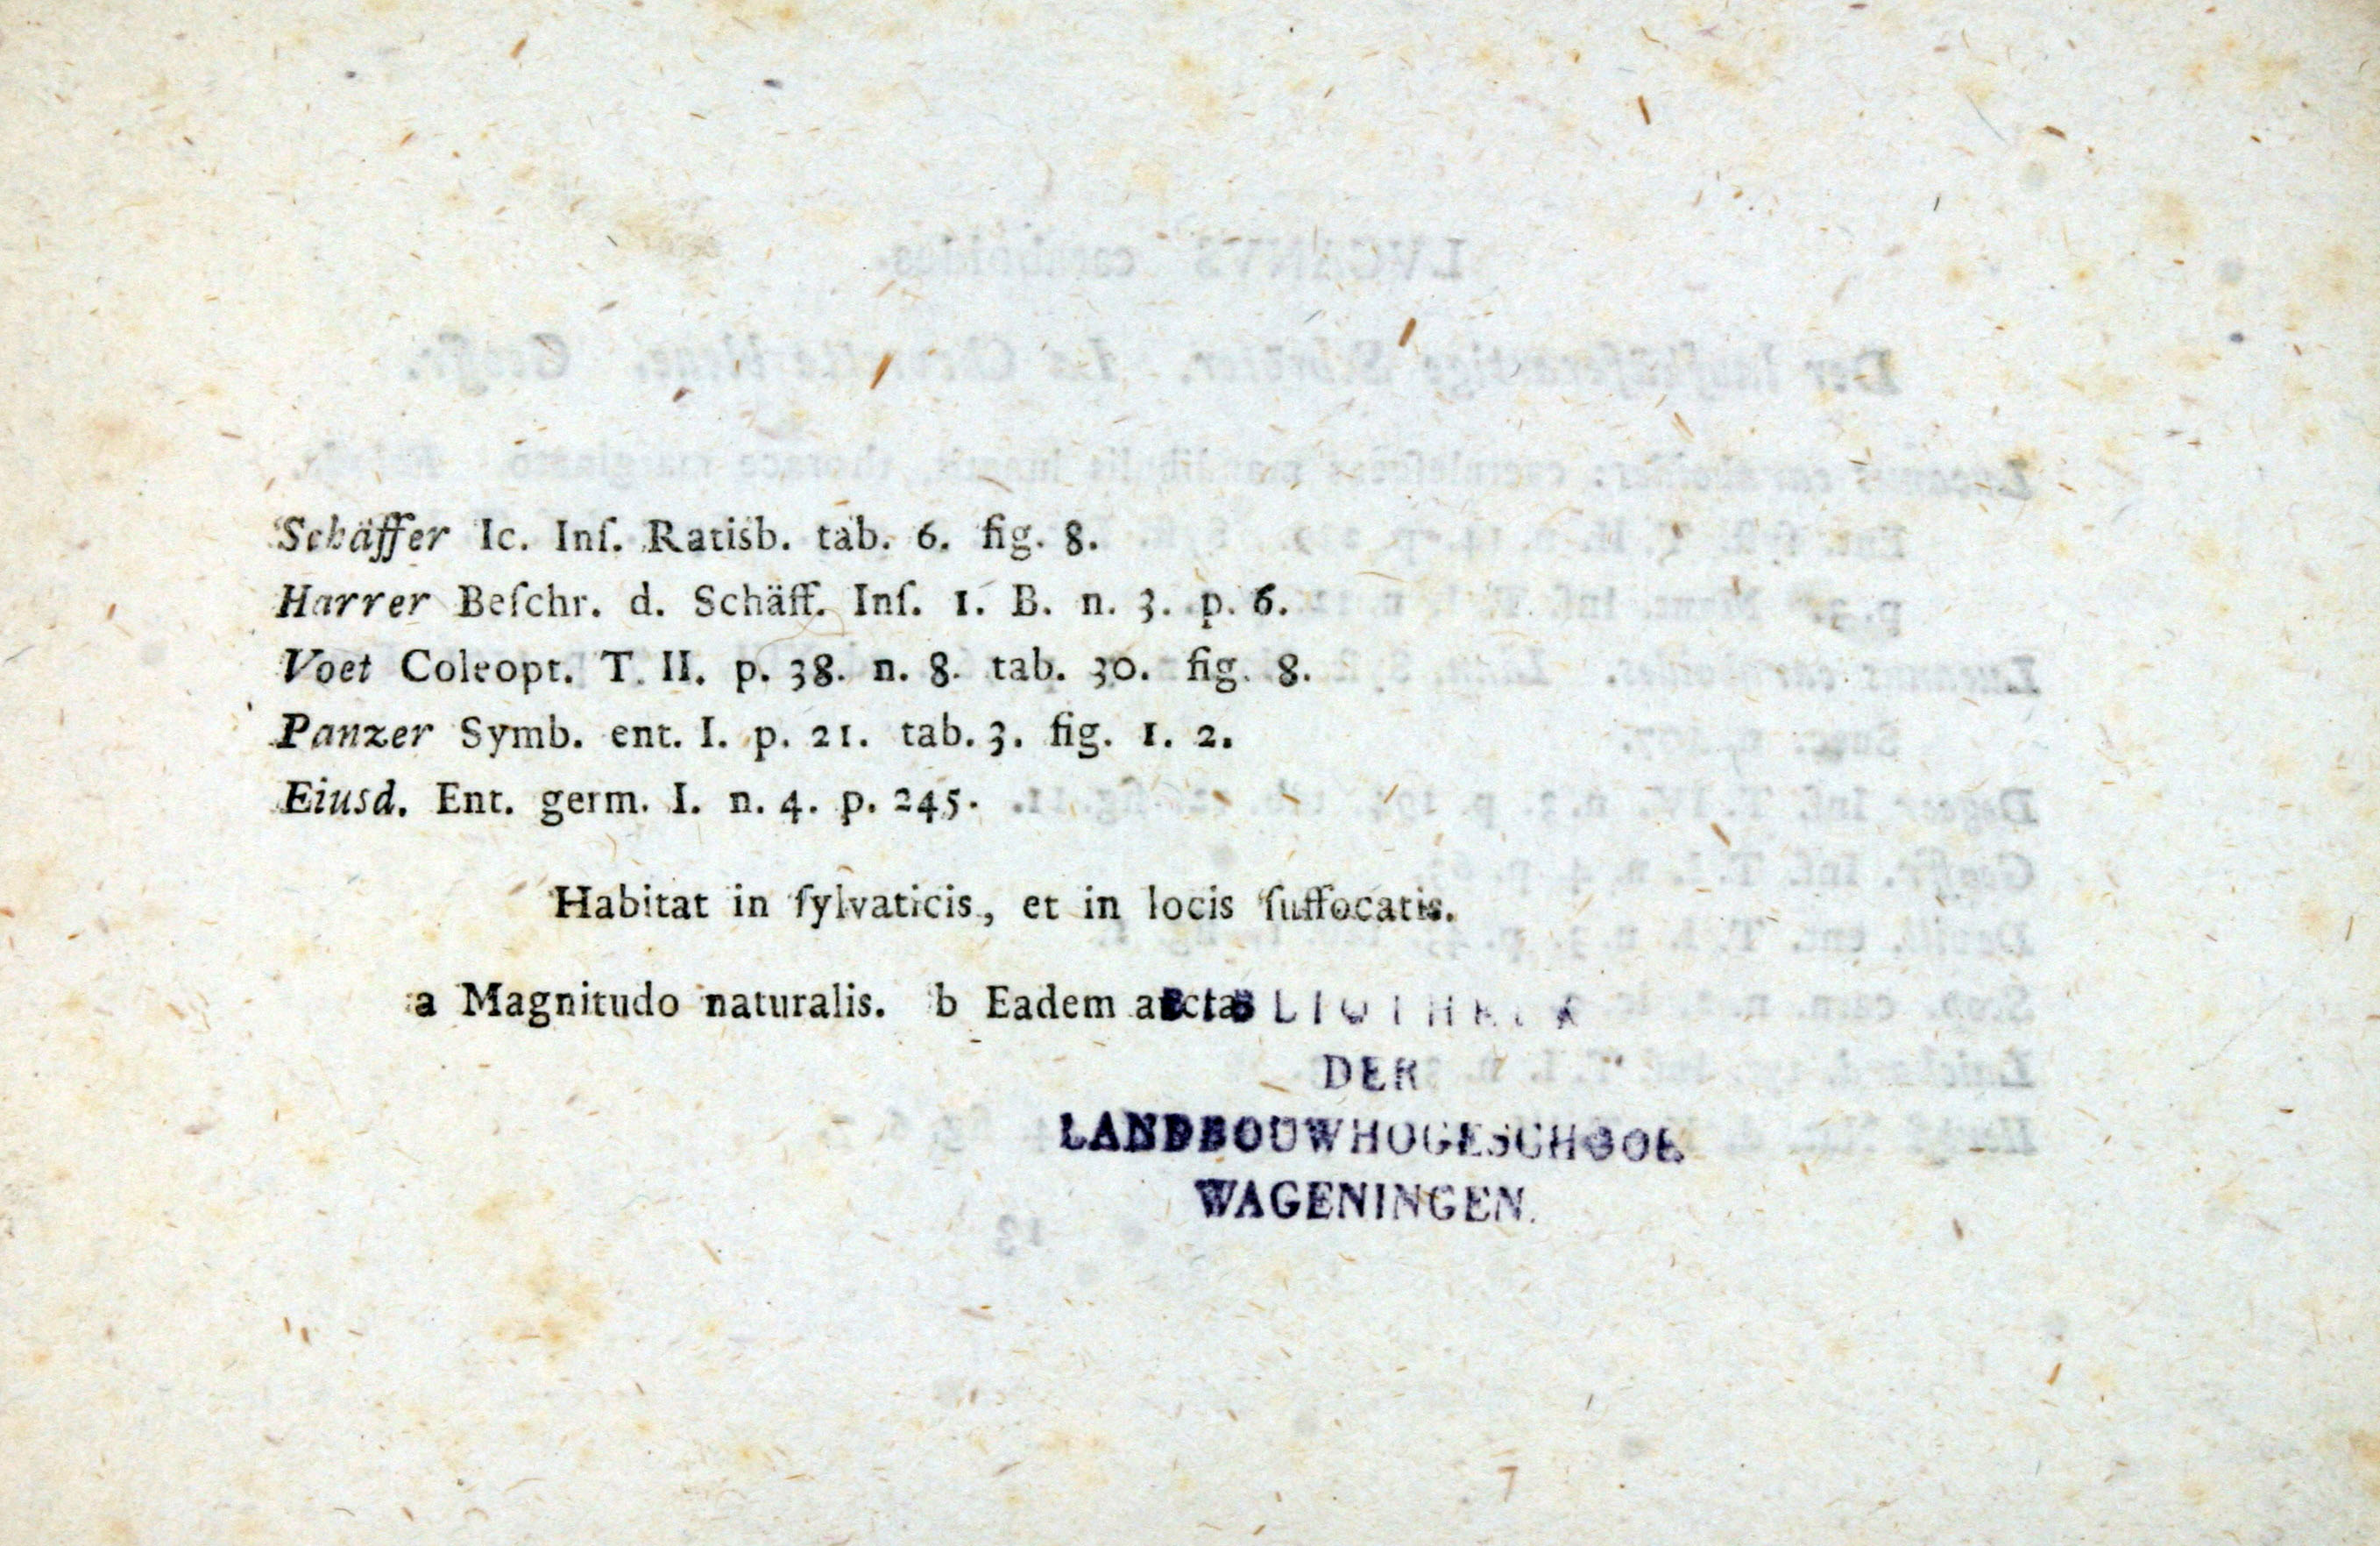 Schäffer Ic. Inſ. Ratisb. tab. 6. fig. 8.
Harrer Beſchr. d. Schäff. Inſ. 1. B. n. 3. p. 6.
Voet Coleopt. T. II. p. 38. n. 8. tab. 30. fig. 8.
Panzer Symb. ent. I. p. 21. tab. 3. fig. 1. 2.
Eiusd. Ent. germ. I. n. 4. p. 245.
Habitat in ſylvaticis, et in locis ſuffocatis.
a Magnitudo naturalis. b Eadem aucta
BIBLIOTHEEK
DER
LANDBOUWHOGESCHOOL
WAGENINGEN.